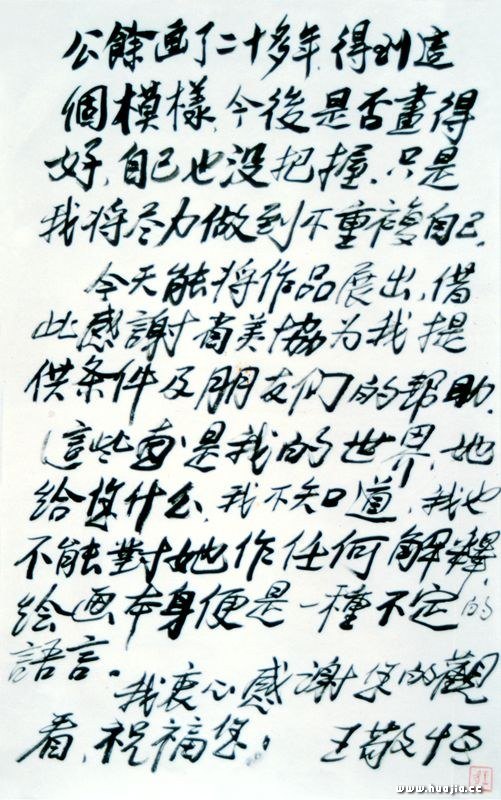 公餘画了二十多年,得到這
個模樣,今後是否畫得
好,自己也没把握、只是
我将尽力做到不重複自己.
今天能将作品展出,借
此感謝省美協为我提
供条件及朋友们的帮助.
這些畫是我的世界,她
给您什么,我不知道,我也
不能對她作任何解释.
绘画本身便是一種不定的
語言.
我衷心感謝您的觀
看,祝福您。 王敬恒
www.huajia.cc